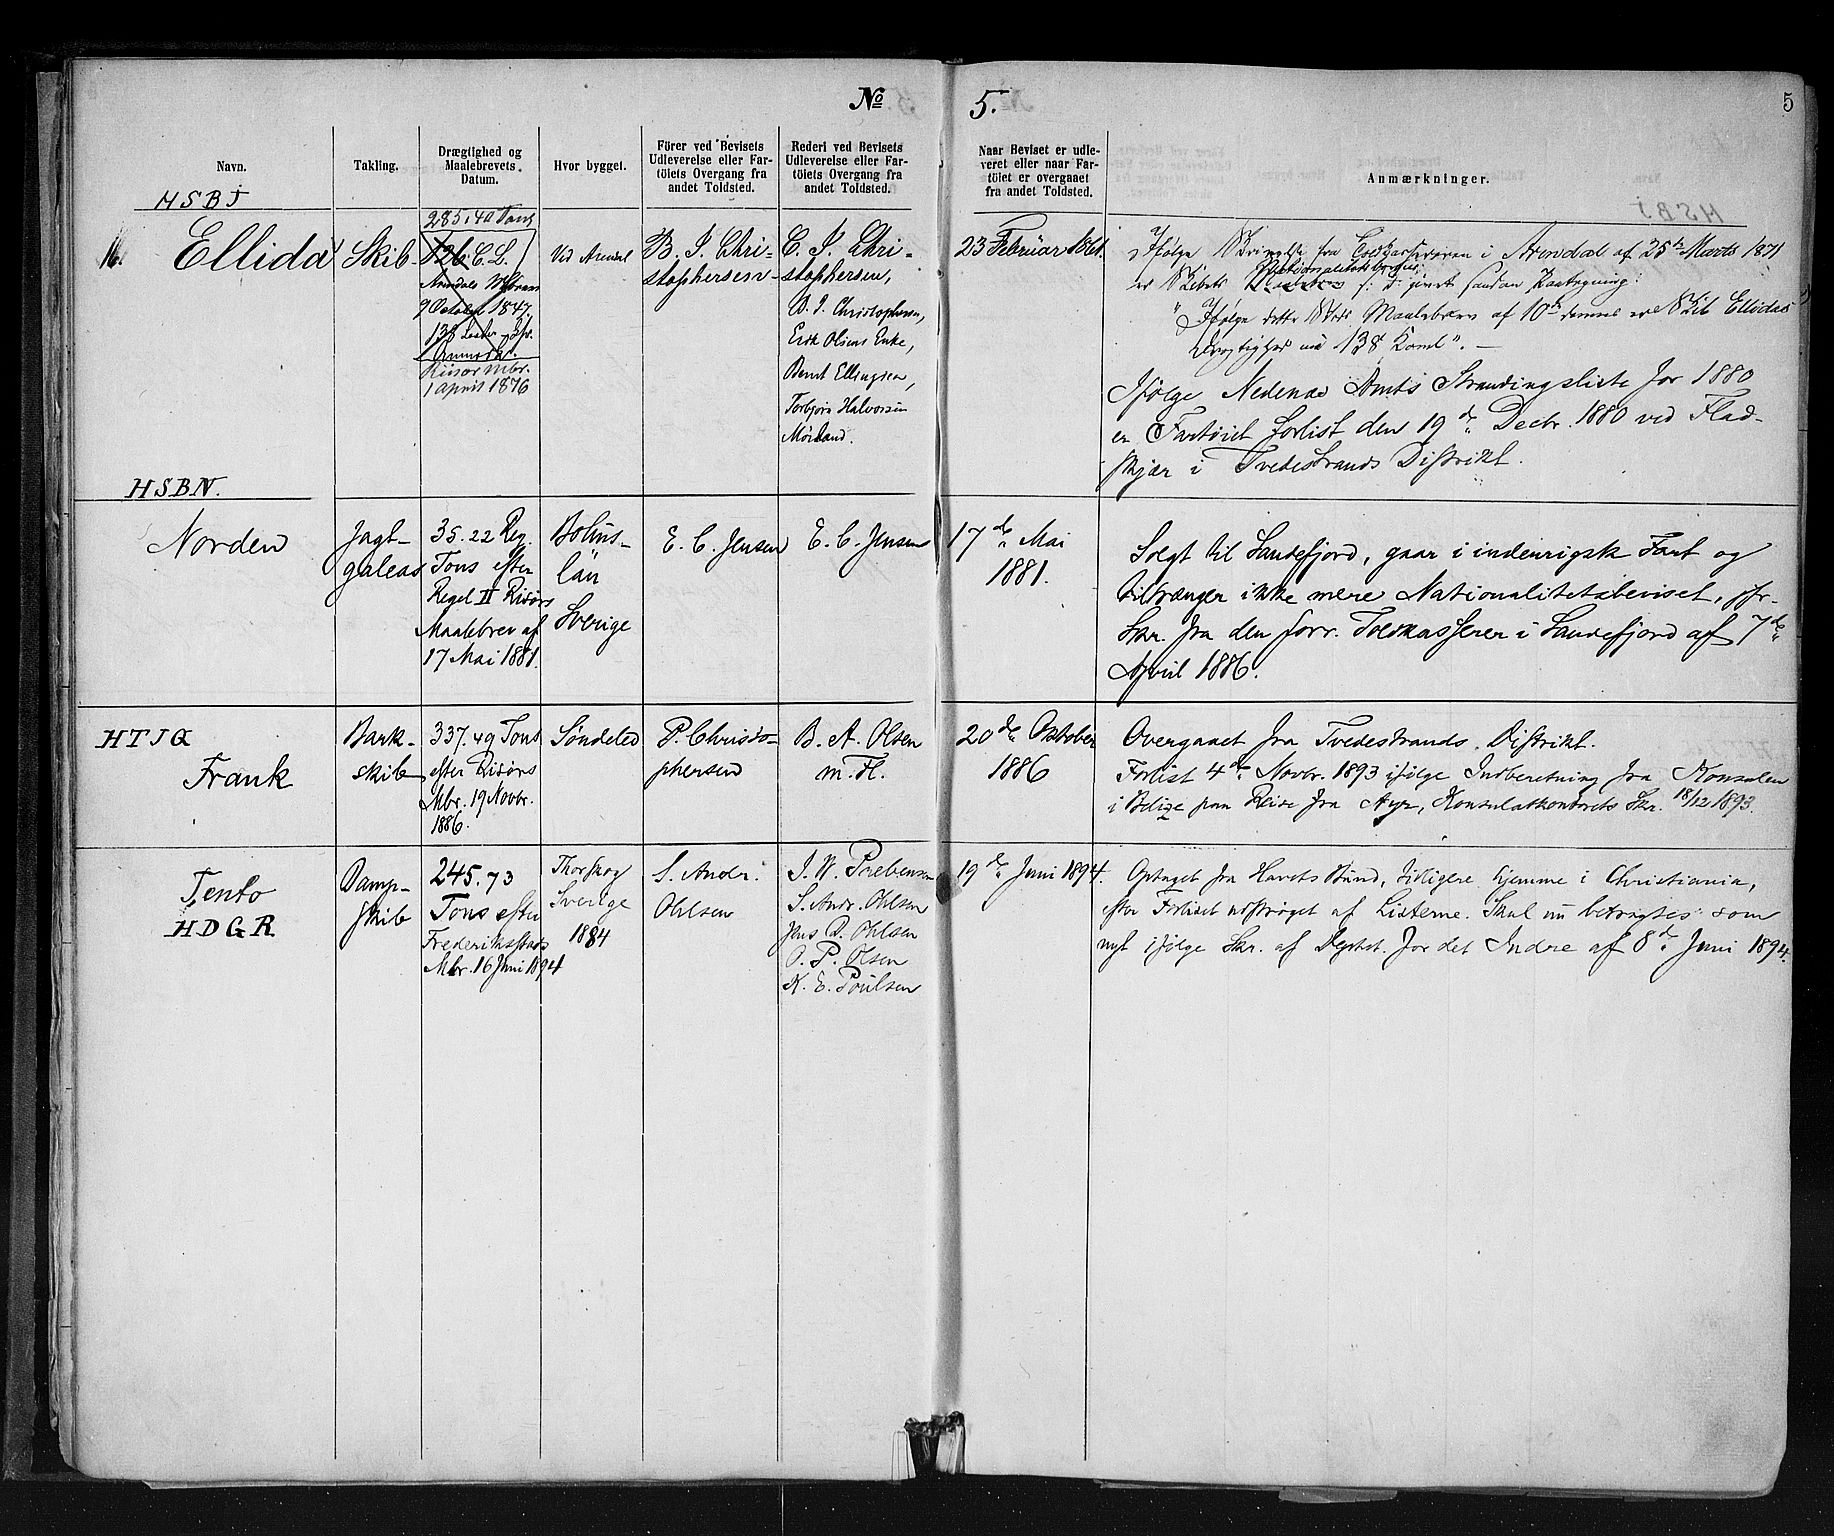 No 5.
5
Navn.
Takling.
Drægtighed og
Maalebrevets
Datum.
Hvor bygget.
Förer ved Bevisets
Udleverelse eller Far-
töiets Overgang fra
andet Toldsted.
Rederi ved Bevisets
Udleverelse eller Far-
töiets Overgang fra
andet Toldsted.
Naar Beviset er udle-
veret eller naar Far-
töiet er overgaaet
fra andet Toldsted.
Anmærkninger.
HSBJ
16.
Ellida
Skib
285,40 Tons
126 C. L.
Arendals Mbrev
9 October 1847.
138
Riisør Mbr.
1 april 1876
Ved Arendal
B. J. Chri-
stophersen
C. J. Chri-
stophersen,
B. J. Christophersen,
Erik Olsens Enke,
Bernt Ellingsen,
Torbjørn Halvorsen
Mørland.
23 Februar 1861.
Ifølge Skrivelse fra Toldkassereren i Arendal af 25de Marts 1871
er Skibets Nationalitetsbevis givet saadan Paategning:
"Ifølge dette Skibs Maalebrev af 10de dennes er Skib Ellidas
Drægtighed nu 138 Koml". —
Ifølge Nedenæs Amts Strandingsliste for 1880
er Fartøiet forlist den 19de Decbr. 1880 ved Flad-
skjær i Tvedestrands Distrikt.
HSBN.
Norden
Jagt-
galeas
35.22 Reg.
Tons efter
Regel II Risørs
Maalebrev af
17 Mai 1881.
Bohus-
län
Sverige
E. C. Jensen
E. C. Jensen
17de Mai
1881.
Solgt til Sandefjord, gaar i indenrigsk Fart og
tiltrænger ikke mere Nationalitetsbeviset, jfr.
Skr. fra den forr. Toldkasserer i Sandefjord af 7de
April 1886.
HTJQ
Frank
Bark-
skib
337.49 Tons
efter Risørs
Mbr. 19 Novbr.
1886.
Søndeled
P. Christo-
phersen
B. A. Olsen
m. Fl.
20de Oktober
1886
Overgaaet fra Tvedestrands Distrikt.
Forlist 4de Novbr. 1893 ifølge Indberetning fra Konsulen
i Belize paa Reise fra Ayr, Konsulatkontorets Skr. 18/12 1893.
Tento
HDGR
Damp-
skib
245.73
Tons efter
Frederikstads
Mbr. 16 Juni 1894
Thorskog
Sverige
1884
S. Andr.
Ohlsen
J. W. Prebensen
S. Andr. Ohlsen
Jens P. Ohlsen
O. P. Olsen
K. E. Poulsen
19de Juni 1894.
Optaget fra Havets Bund, tidligere hjemme i Christiania,
efter Forliset udstrøget af Listerne. Skal nu betragtes som
nyt ifølge Skr. af Dptet. for det Indre af 8de Juni 1894.